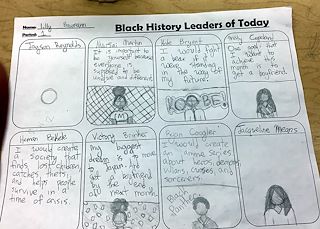 Name: Lilly Baumann
Period: 1
Black History Leaders of Today
Jayson Reynolds
Marsai Martin
It is important to
be yourself because
everyone is
supposed to be
unique and different.
M
Kobe Bryant
I would fight
a bear if it
were standing
in the way of
my future.
KOBE!
Misty Copeland
One goal that
I want to
achieve this
month is to
get a boyfriend.
I would create
a society that
finds lost children
catches thefts
and helps people
survive in a
time of crisis.
Victory Brinker
My biggest
dream is to move
to Japan and
get a boyfriend
by the week
of next month.
Ryan Coogler
I would create
an anime series
about heroes, demons
villains, crusies, and
sorcerers.
Black
Panther
Jacqueline Means